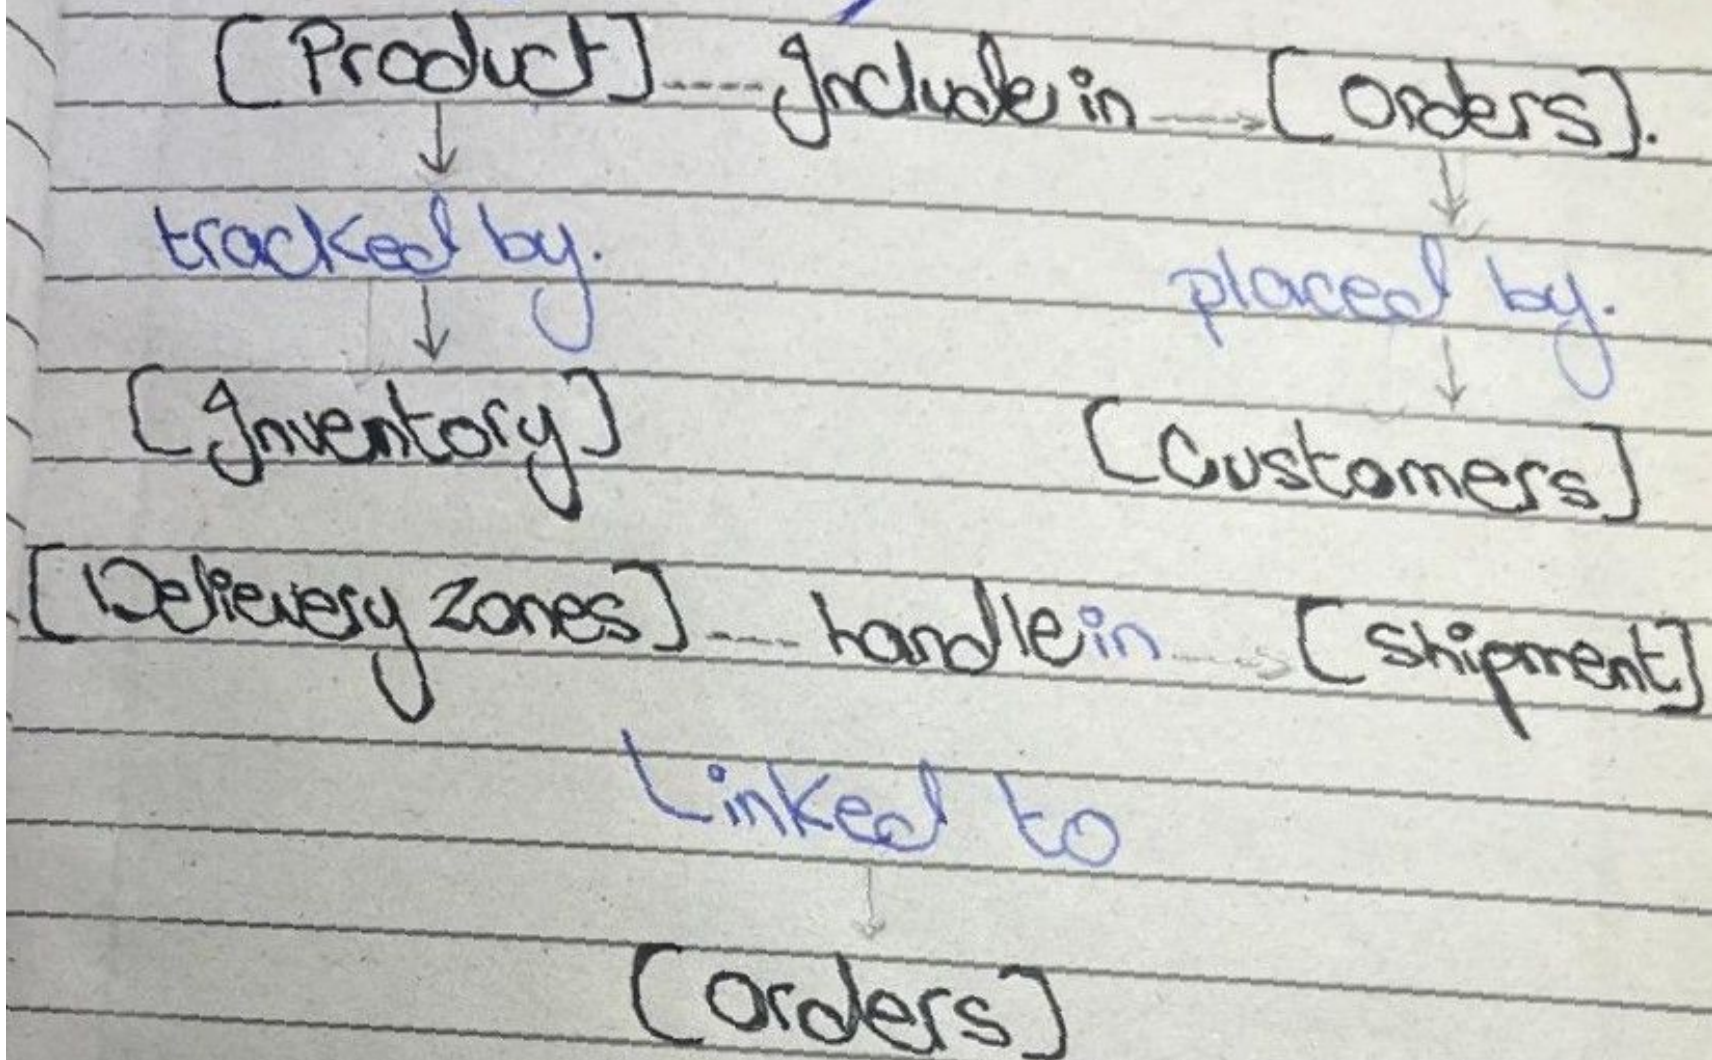 [Product] ---- Include in ----> [Orders].
tracked by. placed by.
[Inventory] [Customers]
[Delievery Zones] ---- handle in ----> [Shipment]
Linked to
[Orders]